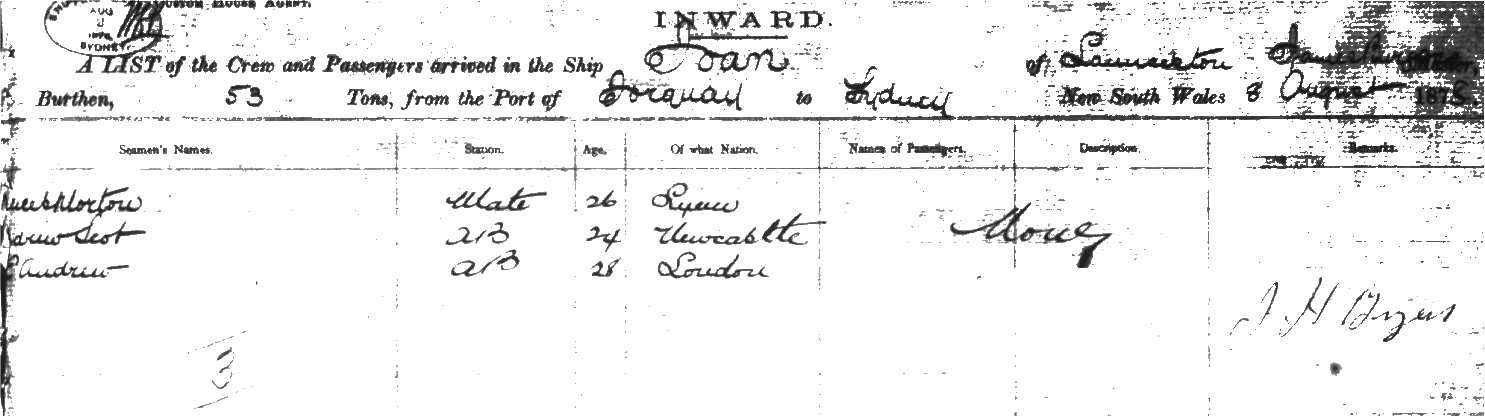 CUSTOM HOUSE AGENT.
AUG
SYDNEY
INWARD.
A LIST of the Crew and Passengers arrived in the Ship Joan of Launceston Master,
Burthen, 53 Tons, from the Port of Torquay to Sydney New South Wales 8 August 1875.
Seamen's Names. Station. Age. Of what Nation. Names of Passengers. Description. Remarks.
Morton Mate 26
Scot AB 24 Newcastle
Andrew AB 28 London
J H
3